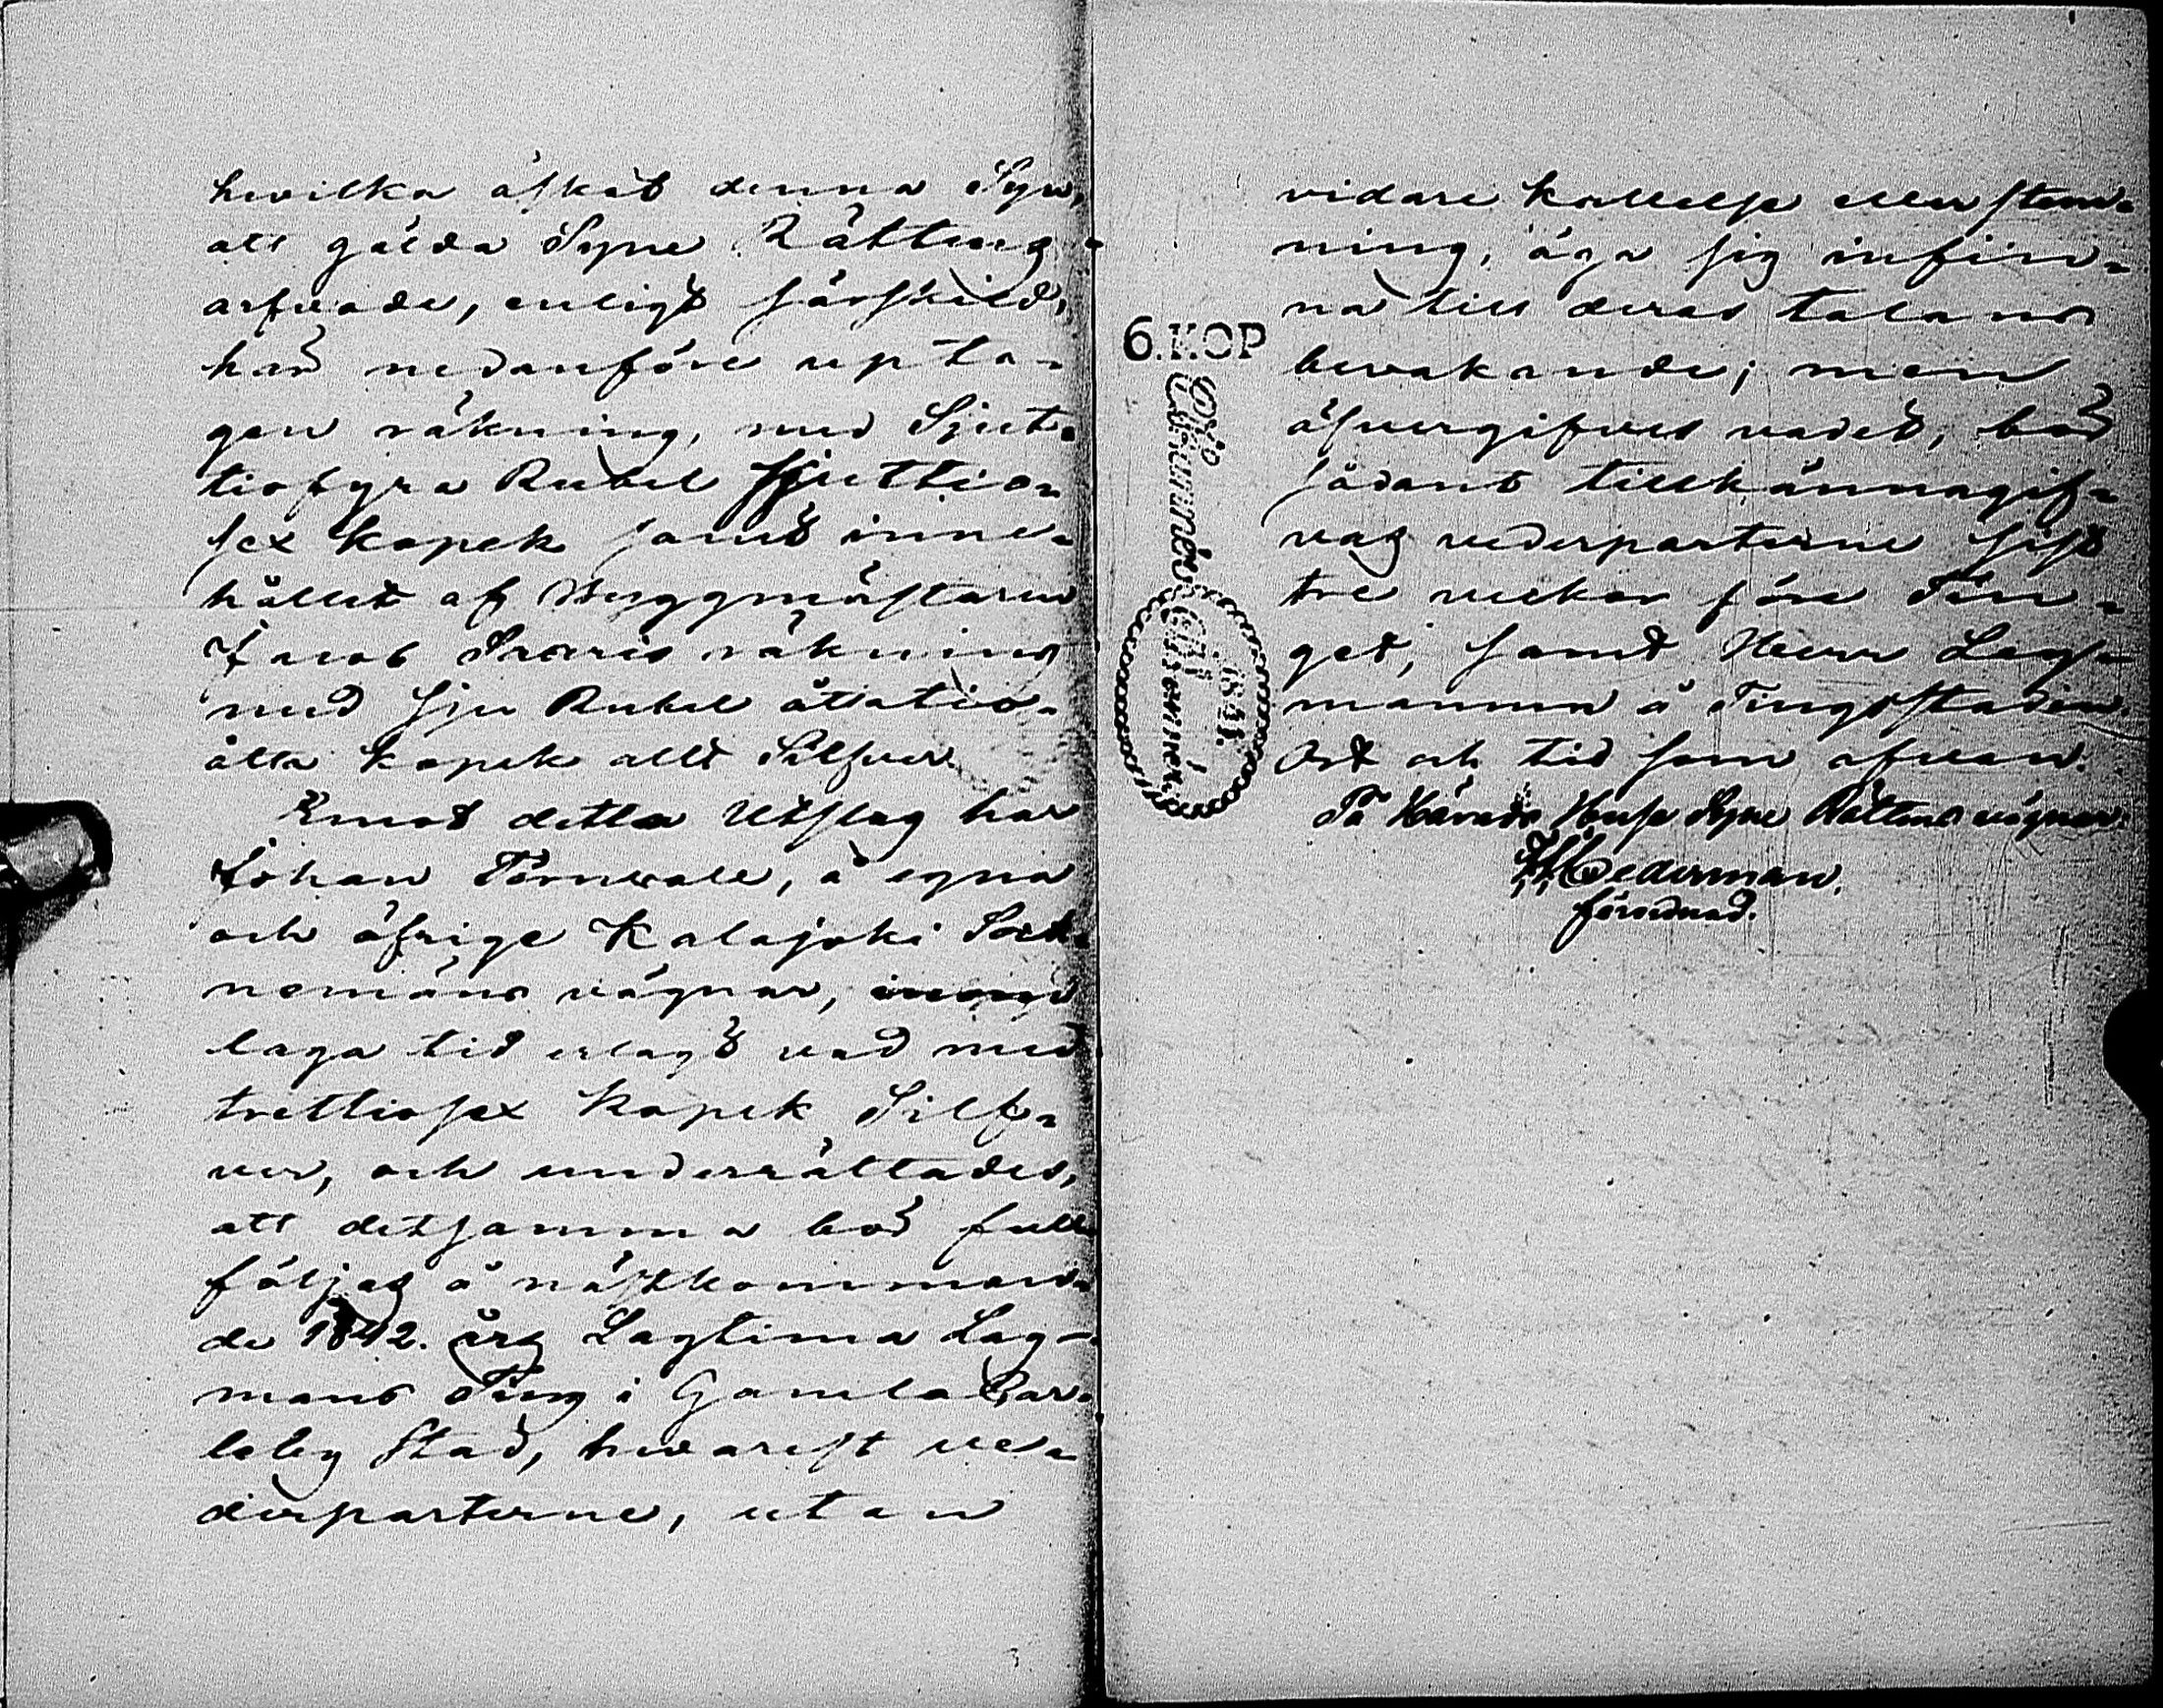 hvilka äskat denna Syn,
att gälda Syne Rättens
arfvode, enligt särskild,
här nedanföre upta-
gen räkning, med Sjut-
tiofyra Rubel Sjuttio-
sex kopek samt inne-
hållet af Byggmästaren
Jacob räkning
med sju Rubel åttatio-
åtta kopek allt Silfver.
Emot detta Utslag har
Johan Törnwall, å egna
och öfrige Kalajoki Sock-
nemäns vägnar, inom
laga tid erlagt vad med
trettiosex kopek Silf-
ver, och underrättades,
att detsamma bör full-
följas å nästkomman-
de 1842. års Lagtima Lag-
mans Ting i Gamla Car-
leby Stad, hvarest ve-
derparterne, utan
vidare kallelse eller stäm-
ning, äga sig infin-
na till deras talans
bevakande; men
öfvergifves vadet, bör
sådant tillkännagif-
vas vederparterne sist
tre veckor före Tin-
get, samt Herr Lag-
mannen å Tingsstaden.
Ort och tid som ofvan.
På Härads Husesyne Rättens vägnar.
Cederman.
förordnad.
6. KOP
1841.